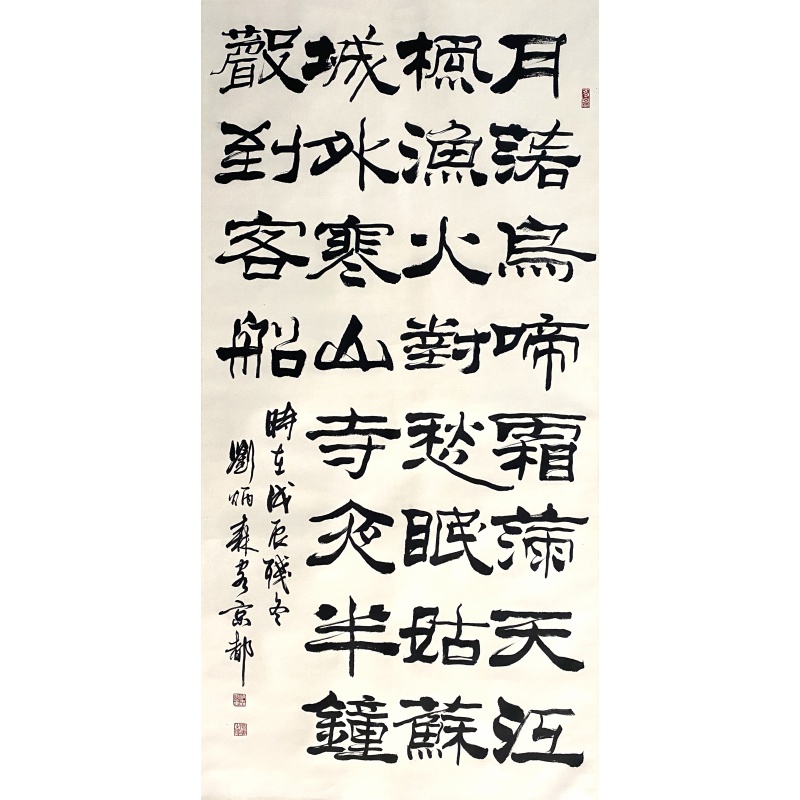 月落烏啼霜滿天江
楓漁火對愁眠姑蘇
城外寒山寺夜半鐘
聲到客船
時在戊辰殘冬
劉炳森書京都